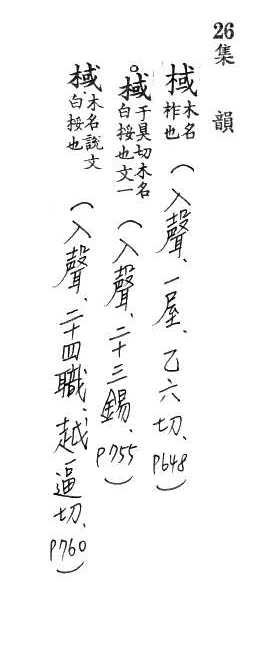 26 集韻
棫 木名柞也 (入聲、一屋、乙六切、p648)
。棫 于狊切木名白桵也文一 (入聲、二十三錫、p755)
棫 木名說文白桵也 (入聲、二十四職、越逼切、p760)